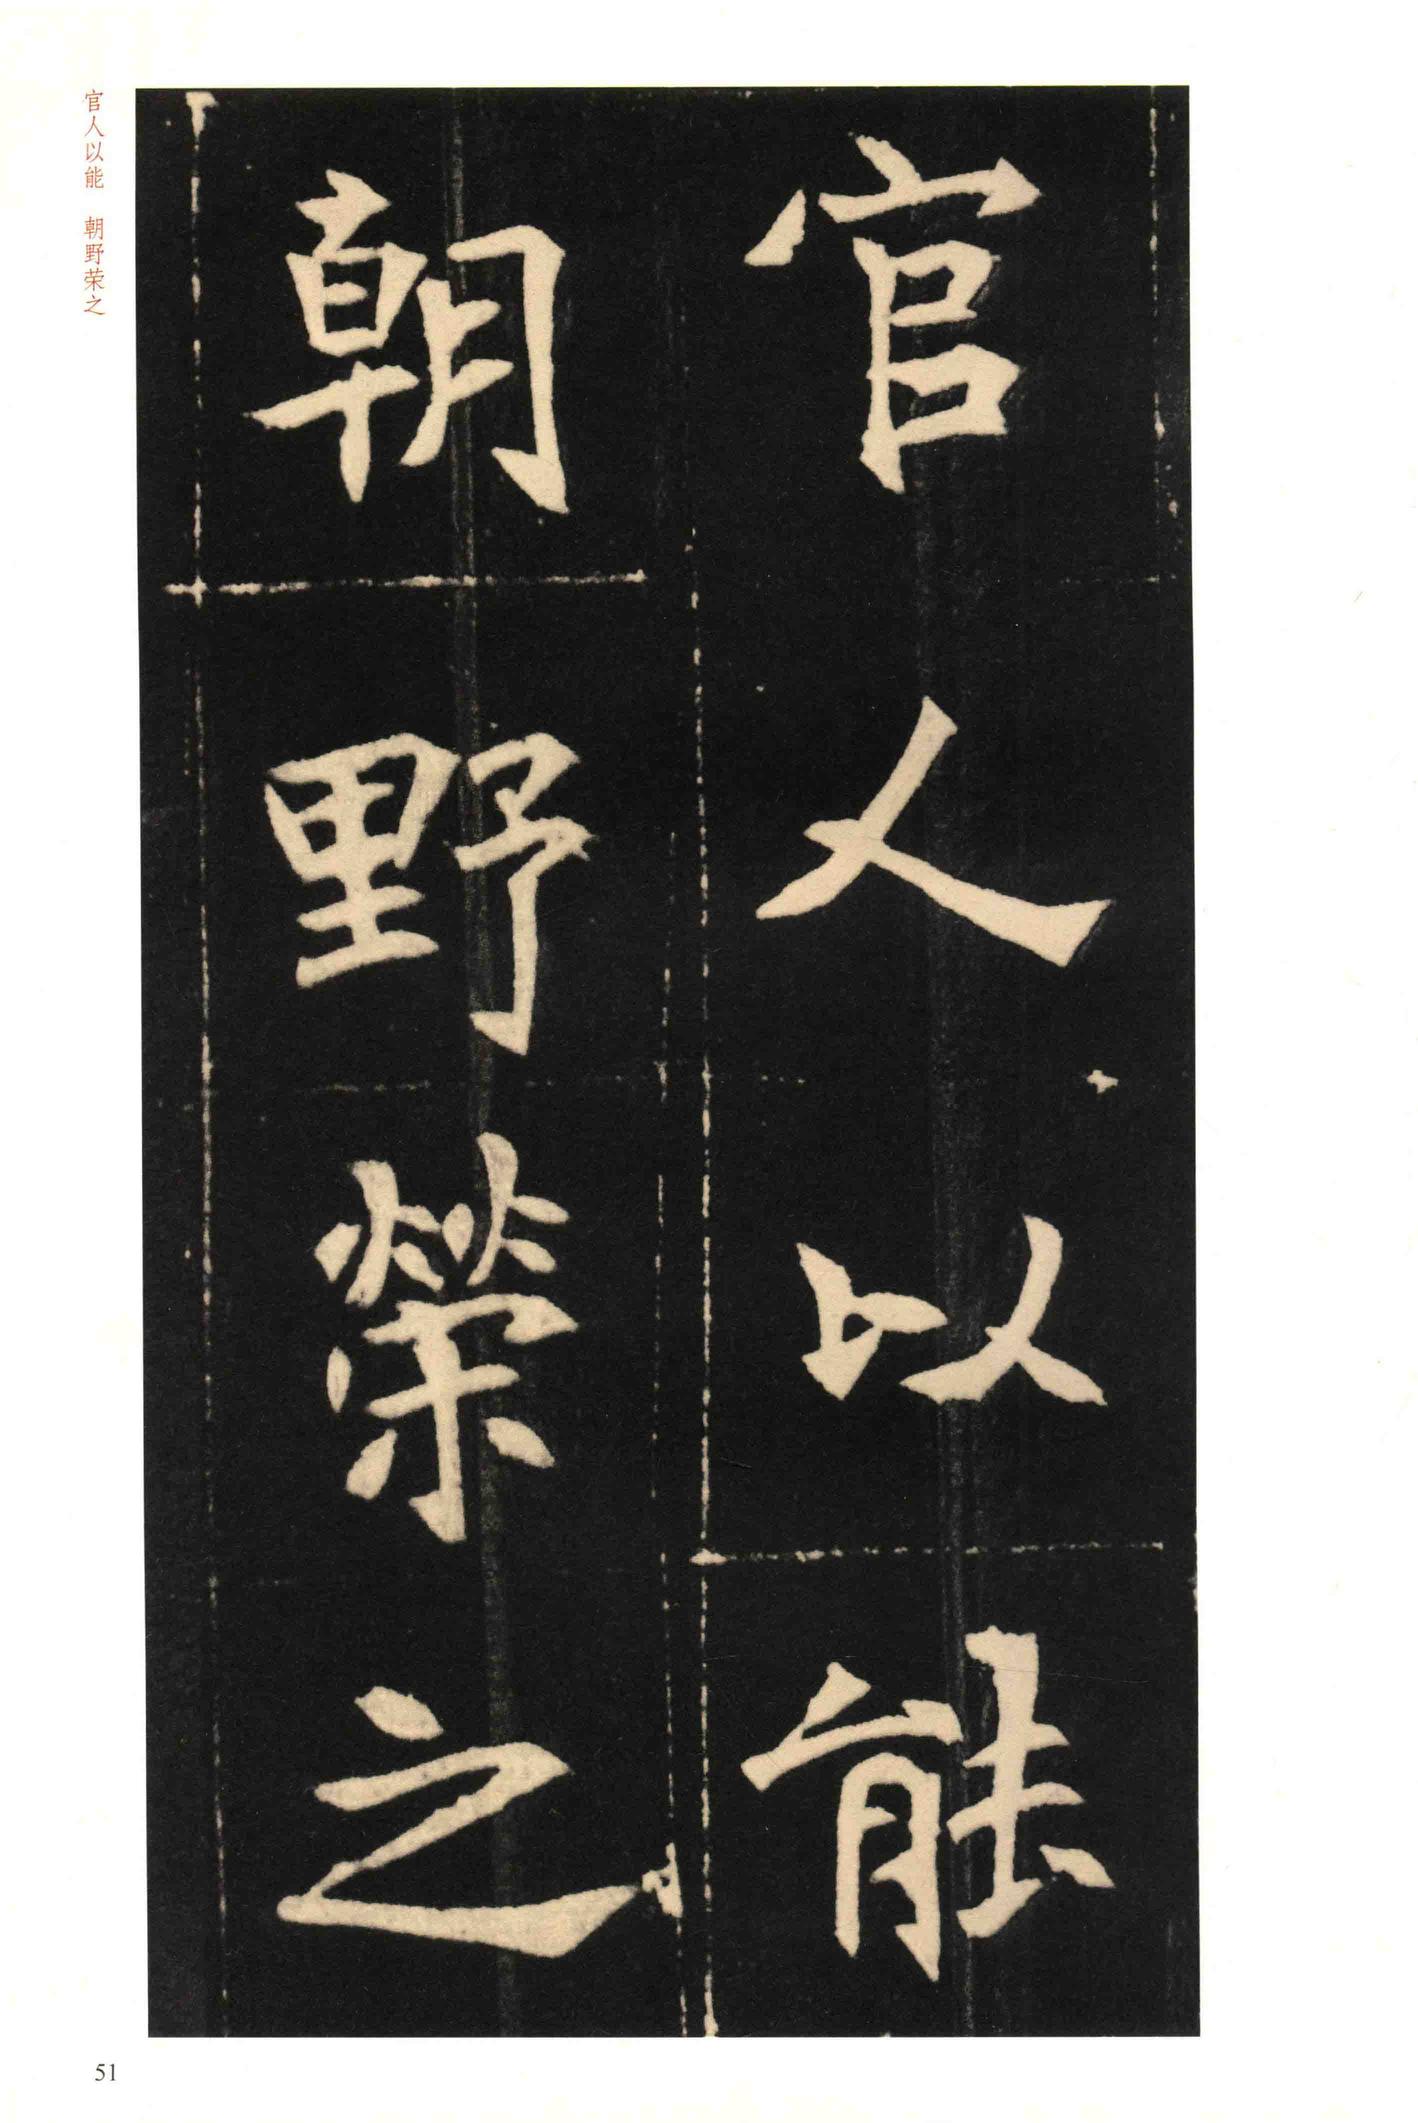 官人以能
朝野榮之
官人以能 朝野荣之
51